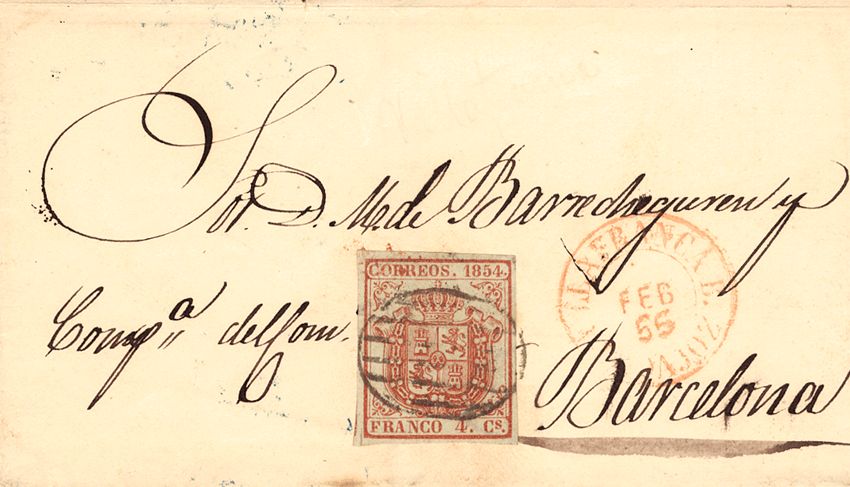 Sor. D. M. de Barrecheguren y
Comp.ª del Com.
Barcelona
CORREOS. 1854.
FRANCO 4. Cs.
VILLAFRANCA D.
FEB
55